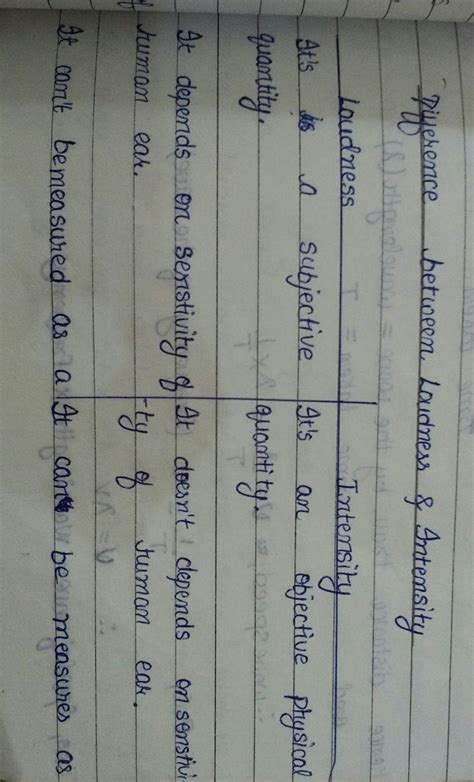 Difference between Loudness & Intensity
Loudness
Intensity
It's is a subjective
quantity.
It's an objective physical
quantity.
It depends on senstivity of
human ear.
It doesn't depends on senstivi
-ty of human ear.
It can't bemeasured as a
It can be measures as